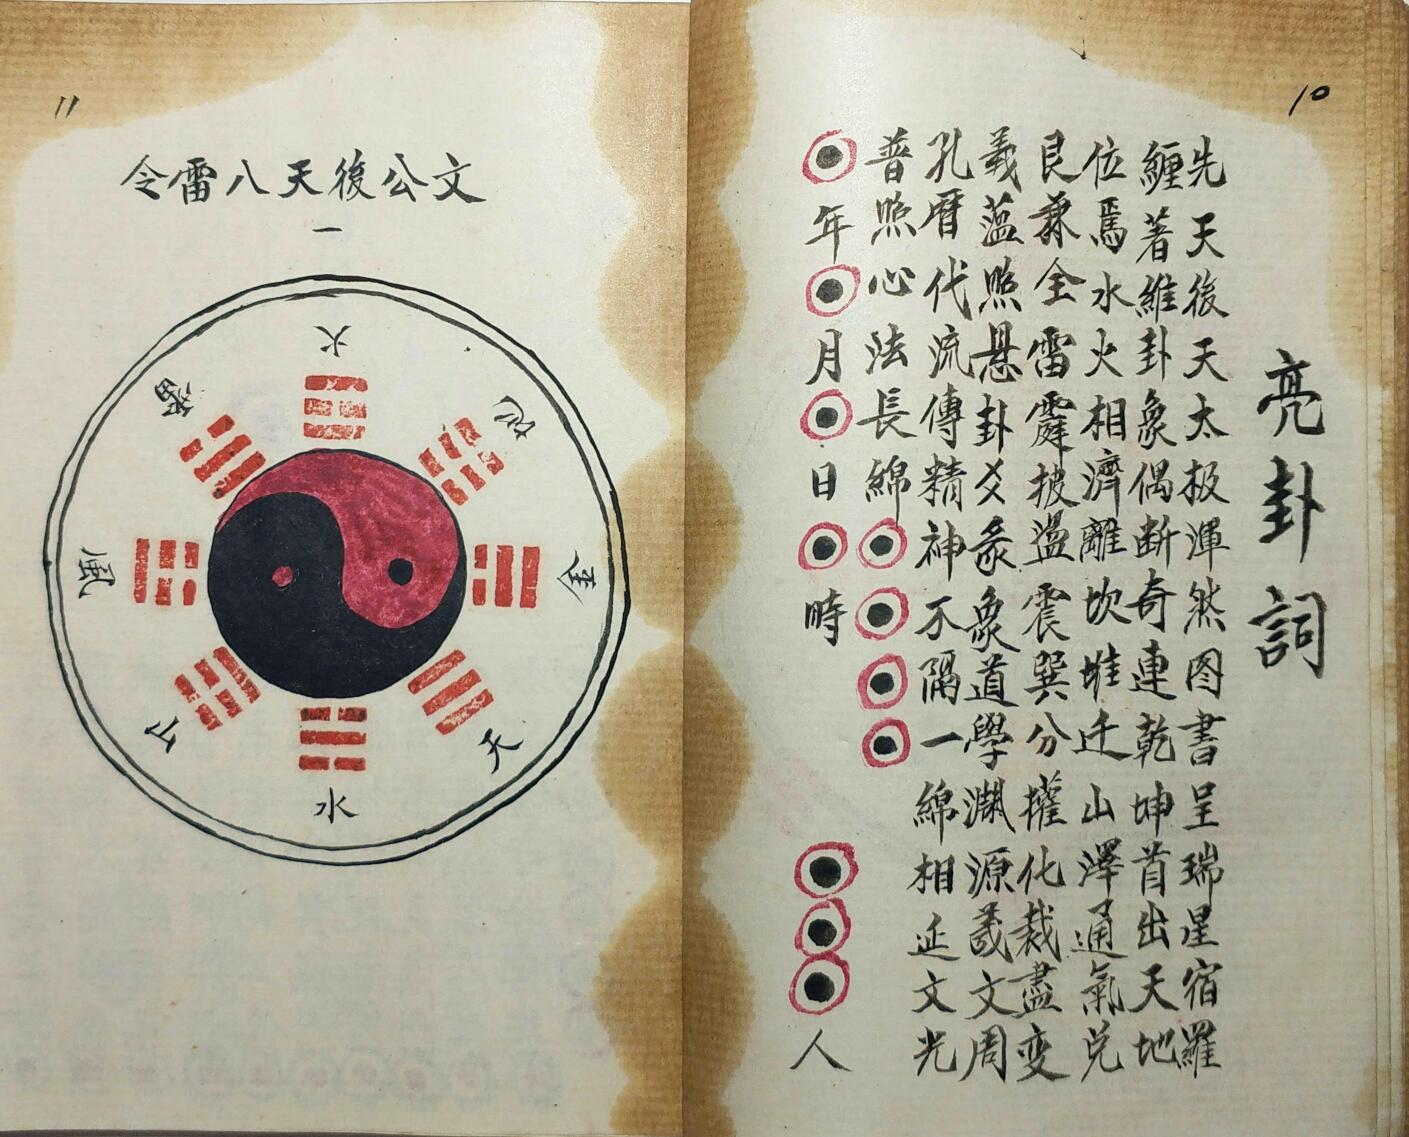 10
亮卦詞
先天後天太极渾然图書呈瑞星宿羅
纏著維卦象偶断奇連乾坤首出天地
位焉水火相濟離坎堆迁山澤通氣兑
艮兼全雷霹披盪震巽分摧化裁盡变
義蕴照悬卦爻彖象道學渊源羲文周
孔曆代流傳精神不隔一綿相延文光
普照心法長綿
年月日時人
11
文公後天八雷令
一
火
地
金
天
水
山
風
雷